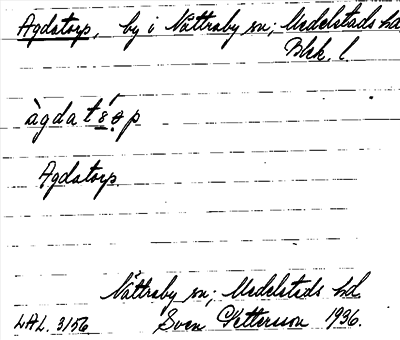 Agdatorp, by i Nättraby sn; Medelstads hd
Blek. l.
àgdatórp
Agdatorp.
Nättraby sn; Medelstads hd
LAL. 3/56 Sven Pettersson 1936.